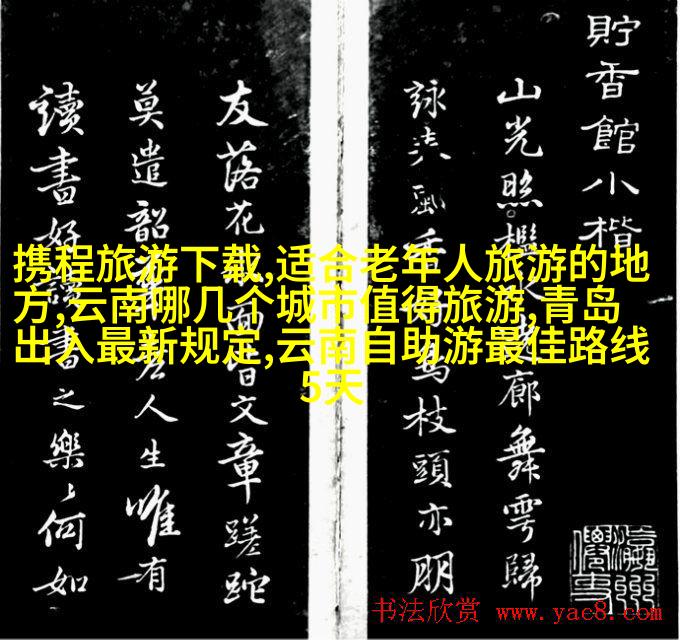 貯香館小楷
山光照檻廊舞雩歸
詠風鳥枝頭亦朋
友落花面皆文章蹉跎
莫遣韶人生唯有
讀書好讀書之樂々何如
携程旅游下载,适合老年人旅游的地
方,云南哪几个城市值得旅游,青岛
出入最新规定,云南自助游最佳路线
5天
书法欣赏 www.yac8.com